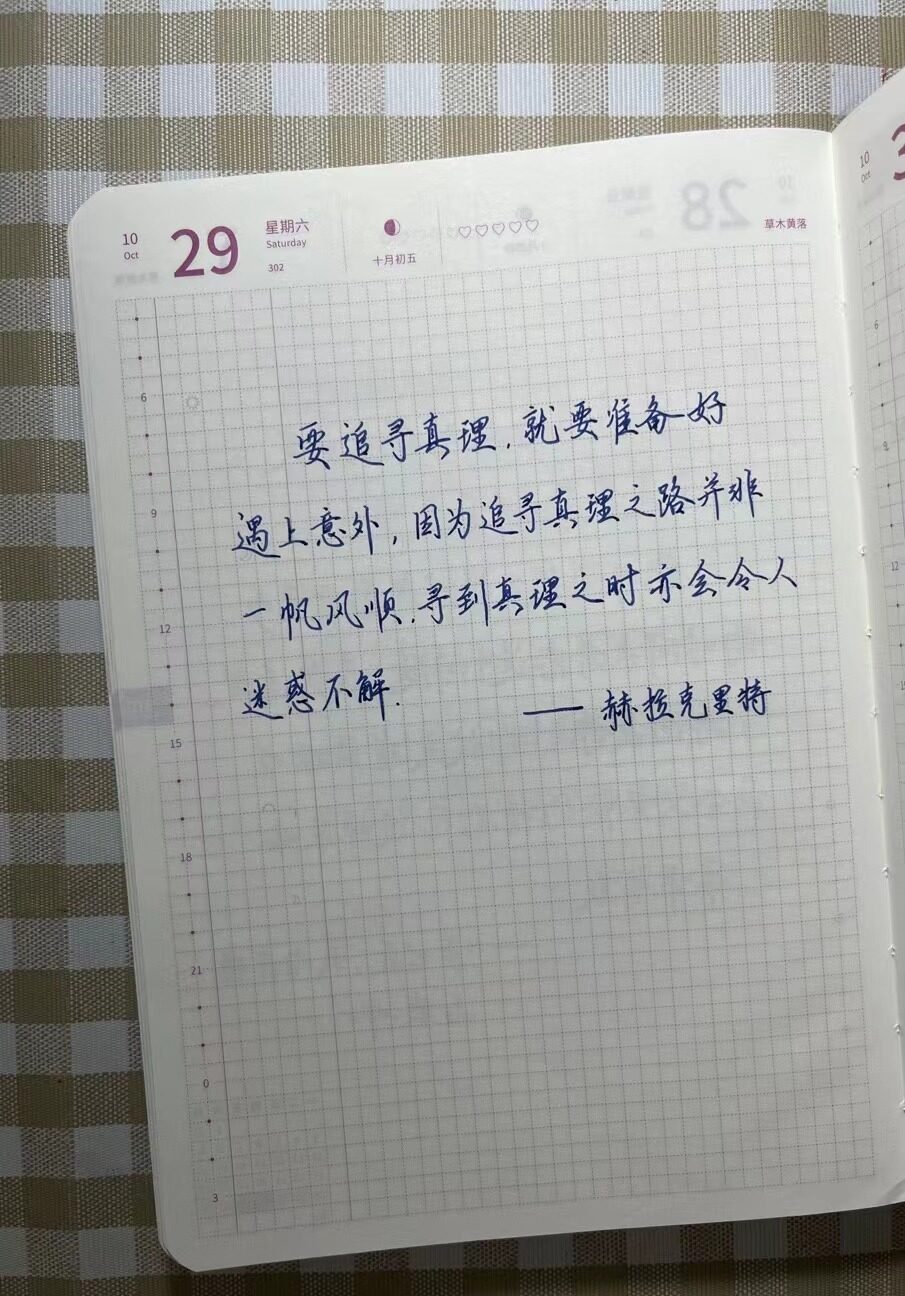 10
Oct
29
星期六
Saturday
302
十月初五
草木黄落
28
10
Oct
要追寻真理，就要准备好
遇上意外，因为追寻真理之路并非
一帆风顺，寻到真理之时亦会令人
迷惑不解.
—— 赫拉克里特
6
9
12
15
18
21
0
3
6
9
12